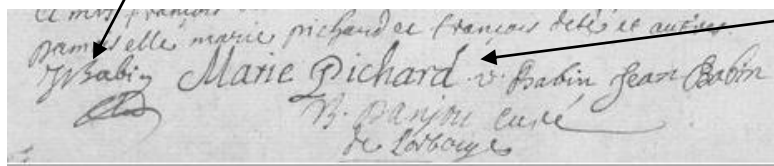 et mre françois
damoiselle marie pichard et françois et autres.
JBabin Marie Pichard v. Babin Jean Babin
B. Danjou curé
de